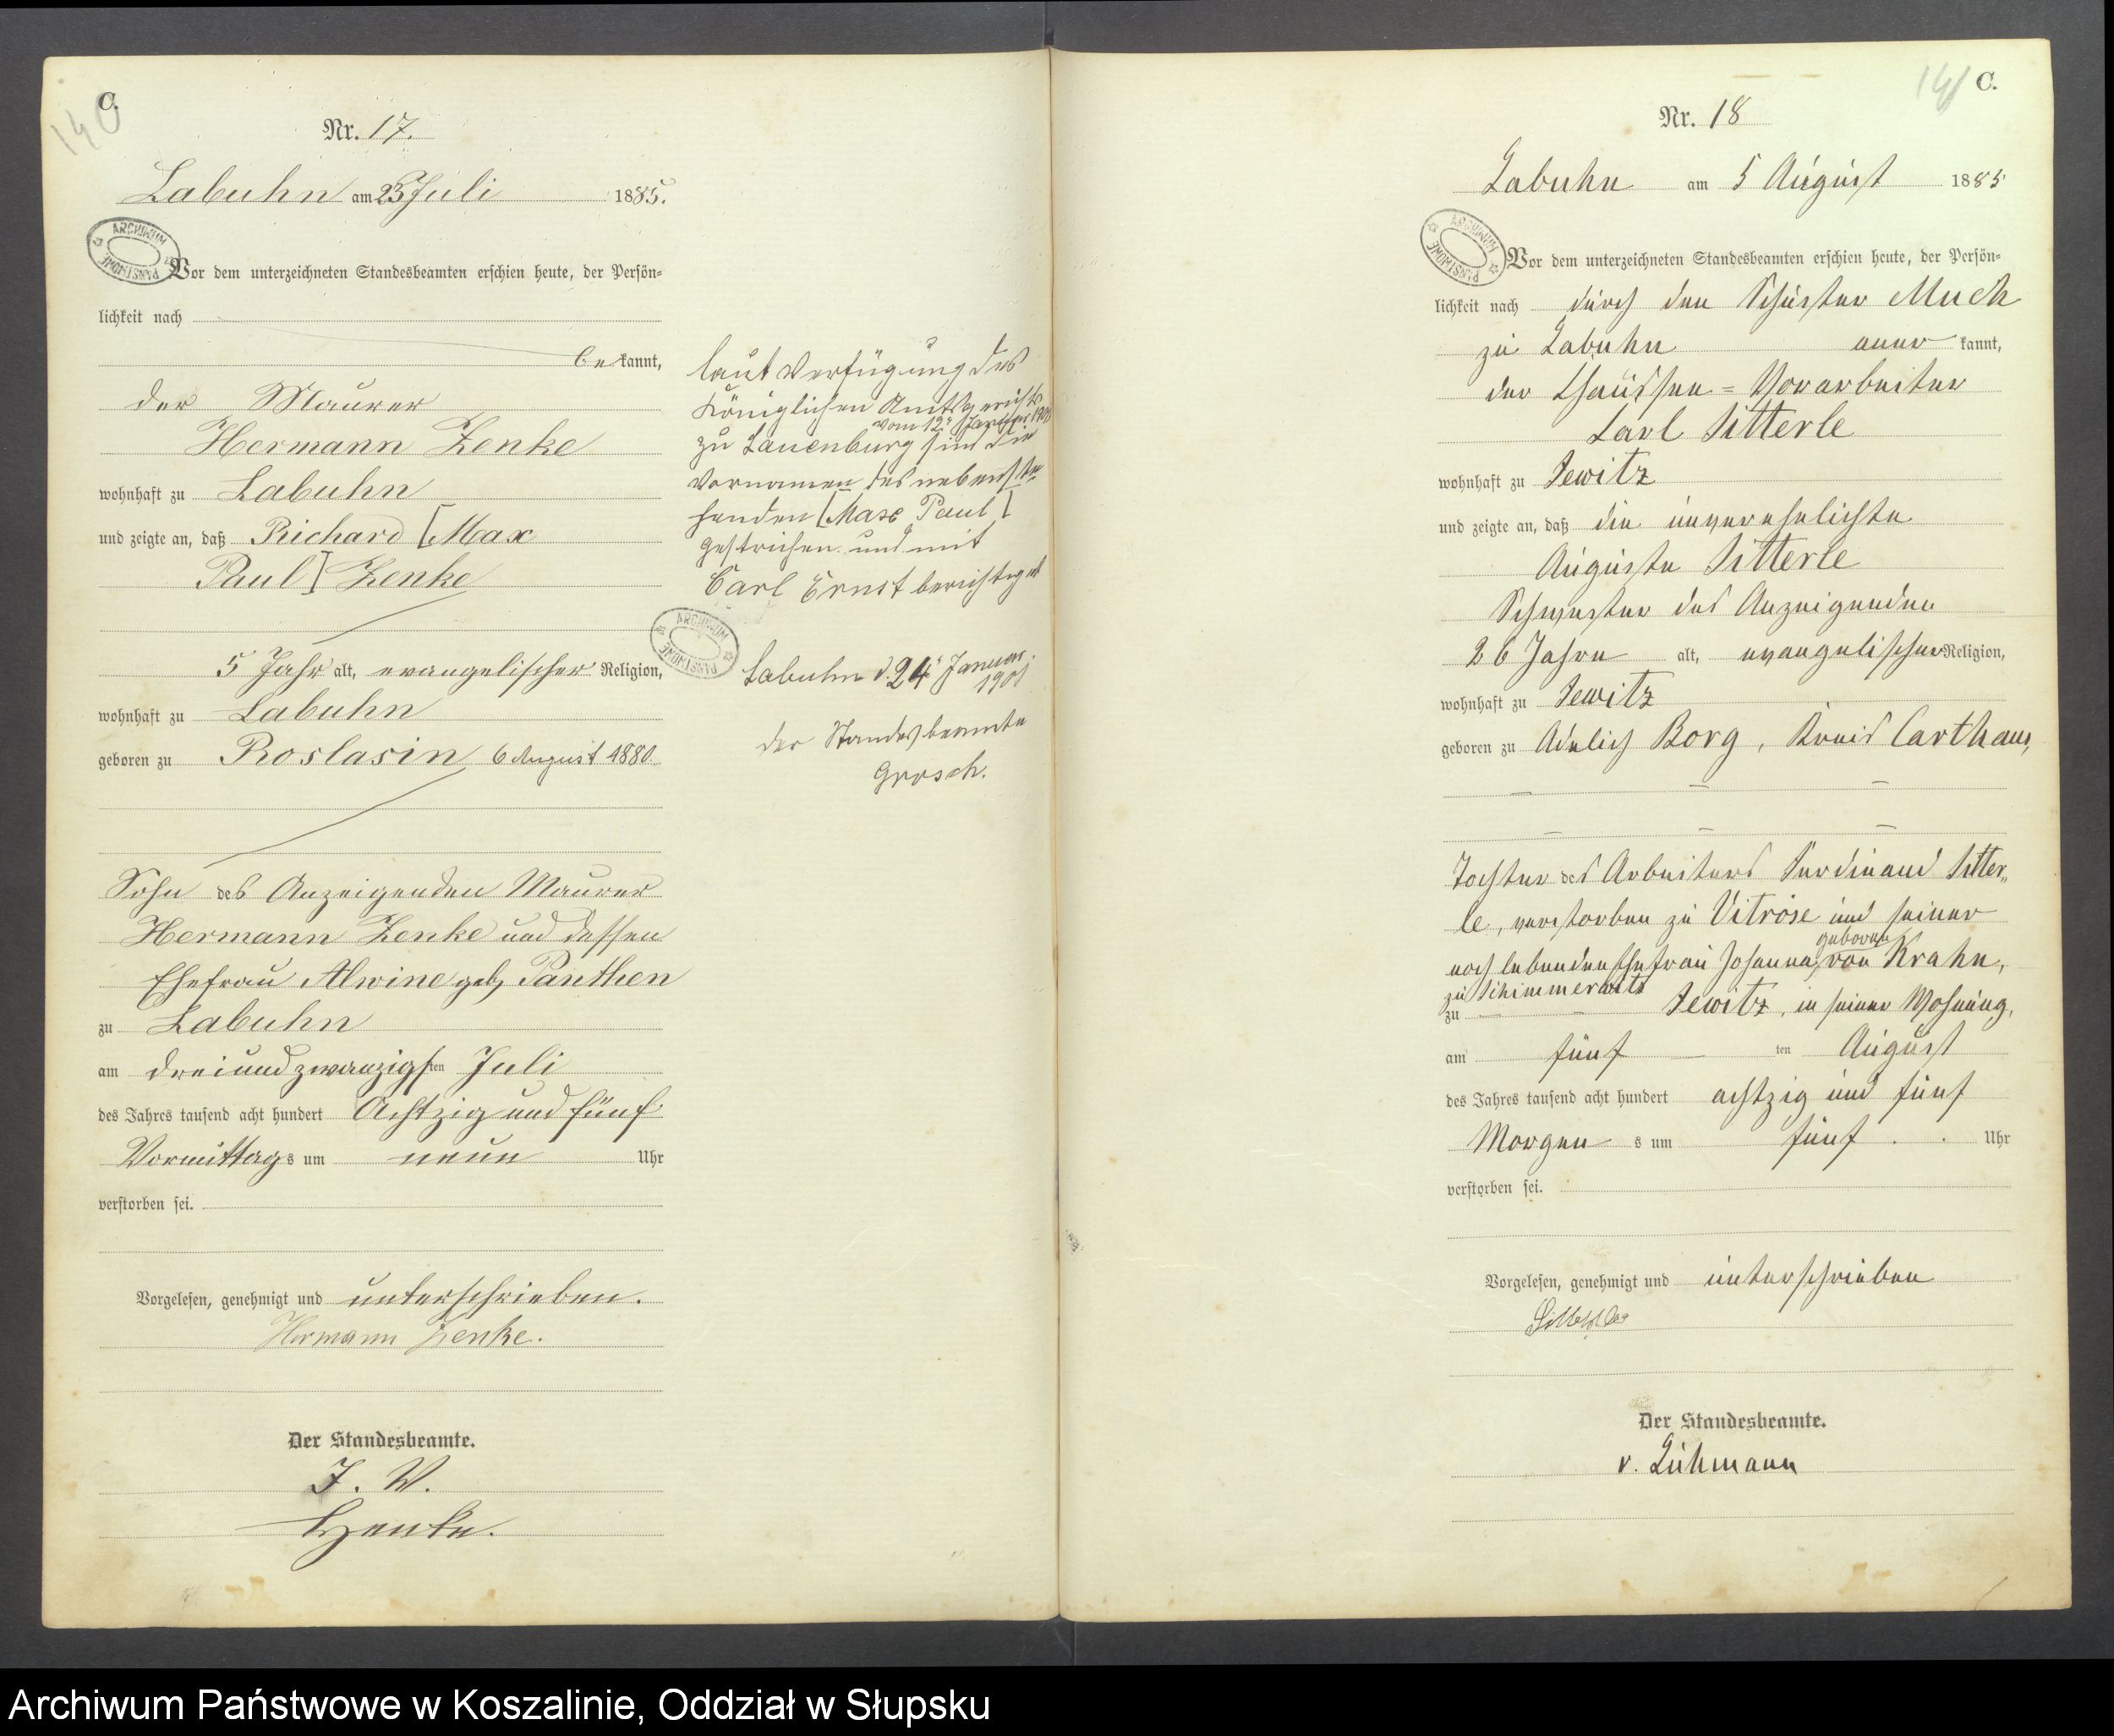 140
C.
Nr. 17.
Labuhn am 23 Juli 1885.
ARCHIWUM PAŃSTWOWE
Vor dem unterzeichneten Standesbeamten erschien heute, der Persön-
lichkeit nach
bekannt,
der Maurer
Hermann Zenke
wohnhaft zu Labuhn
und zeigte an, daß Richard [Max
Paul] Zenke
5 Jahr alt, evangelischer Religion,
wohnhaft zu Labuhn
geboren zu Roslasin 6 August 1880.
Sohn des Anzeigenden Maurer
Hermann Zenke und dessen
Ehefrau Alwine geb. Panthen
zu Labuhn
am dreiundzwanzigsten Juli
des Jahres tausend acht hundert Achtzig und fünf
Vormittags um neun Uhr
verstorben sei.
Vorgelesen, genehmigt und unterschrieben.
Hermann Zenke.
Der Standesbeamte.
J. V.
Henke.
laut Verfügung des
Königlichen Amtsgerichts
vom 12. Januar
zu Lauenburg sind die
Vornamen des nebenste-
henden [Max Paul]
gestrichen und mit
Carl Ernst berichtigt
ARCHIWUM PAŃSTWOWE
Labuhn d. 24. Januar
1901
der Standesbeamte
Grosch.
141
C.
Nr. 18
Labuhn am 5 August 1885
ARCHIWUM PAŃSTWOWE
Vor dem unterzeichneten Standesbeamten erschien heute, der Persön-
lichkeit nach durch den Schuster Much
zu Labuhn anerkannt,
der Chaussee-Vorarbeiter
Carl Sitterle
wohnhaft zu Jewitz
und zeigte an, daß die unverehelichte
Auguste Sitterle
Schwester des Anzeigenden
26 Jahre alt, evangelischer Religion,
wohnhaft zu Jewitz
geboren zu Adelich Borg, Kreis Carthaus,
Tochter des Arbeiters Ferdinand Sitter-
le, verstorben zu Vitröse und seiner
geborene
noch lebenden Ehefrau Johanna, von Krahn,
zu Schimmerwitz
zu Jewitz, in seiner Wohnung,
am fünf ten August
des Jahres tausend acht hundert achtzig und fünf
Morgens um fünf Uhr
verstorben sei.
Vorgelesen, genehmigt und unterschrieben
Der Standesbeamte.
v. Lühmann
Archiwum Państwowe w Koszalinie, Oddział w Słupsku